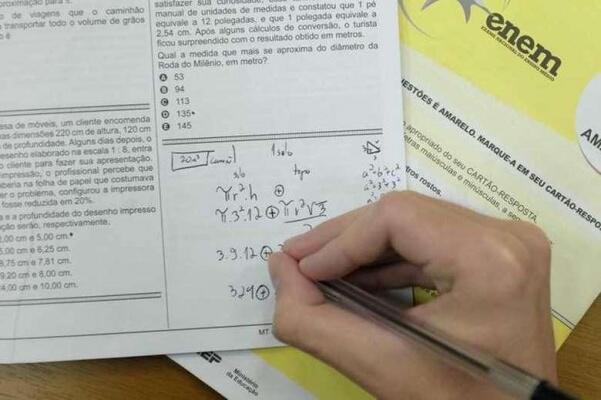 de viagens que o caminhão
transportar todo o volume de grãos
satisfazer sua curiosidade,
manual de unidades de medidas e constatou que 1 pé
equivale a 12 polegadas, e que 1 polegada equivale a
2,54 cm. Após alguns cálculos de conversão, o turista
ficou surpreendido com o resultado obtido em metros.
Qual a medida que mais se aproxima do diâmetro da
Roda do Milênio, em metro?
A 53
B 94
C 113
D 135•
E 145
sa de móveis, um cliente encomenda
as dimensões 220 cm de altura, 120 cm
de profundidade. Alguns dias depois, o
desenho elaborado na escala 1 : 8, entra
cliente para fazer sua apresentação.
impressão, o profissional percebe que
beria na folha de papel que costumava
er o problema, configurou a impressora
fosse reduzida em 20%.
a e a profundidade do desenho impresso
ção serão, respectivamente,
2,00 cm e 5,00 cm.•
5,00 cm e 6,25 cm.
8,75 cm e 7,81 cm.
9,20 cm e 8,00 cm.
4,00 cm e 10,00 cm.
20m³ 1 silo
silo topo
πr².h ⊕
π.3².12 ⊕ πr²√3
3.9.12 ⊕
324 ⊕
a²=b²+c²
MT
enem
EXAME NACIONAL DO ENSINO MÉDIO
QUESTÕES É AMARELO. MARQUE-A EM SEU CARTÃO-RESPOSTA
apropriado do seu CARTÃO-RESPOSTA
letras maiúsculas e minúsculas, a seg
tros rostos.
AM
Ministério
da Educação